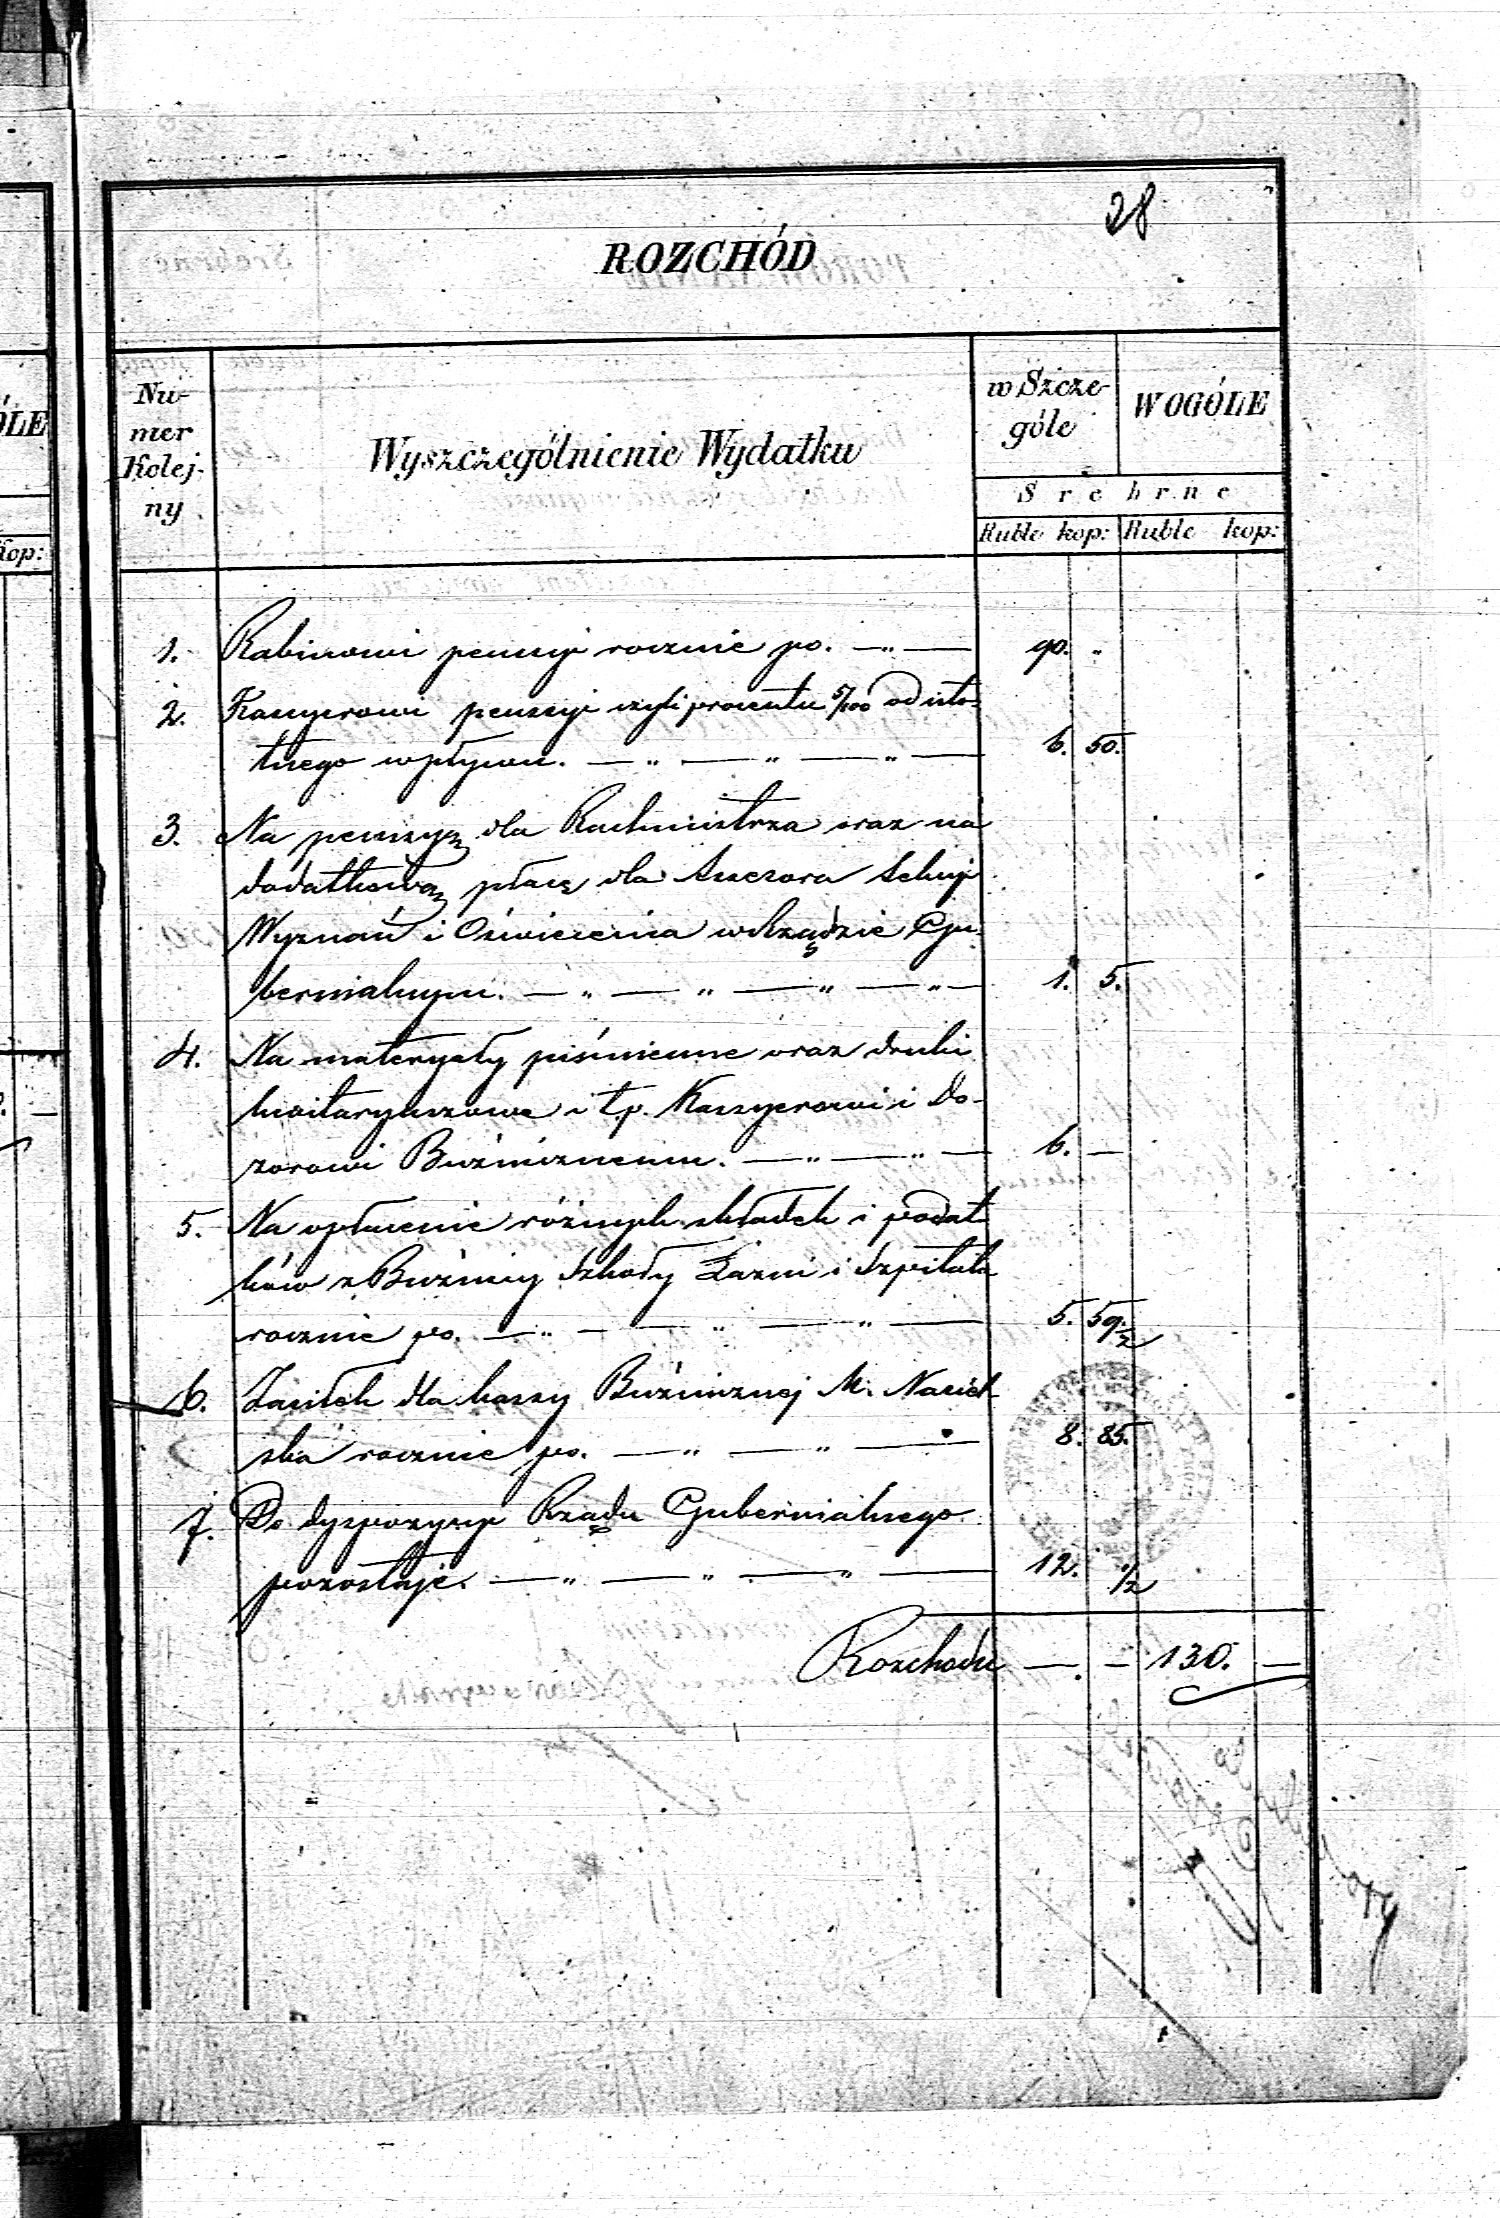 28
ROZCHÓD
Nu-
mer
Kolej-
ny
Wyszczególnienie Wydatku
w Szcze-
góle
W OGÓLE
Srebrne
Ruble kop: Ruble kop:
1. Rabinowi pensyi rocznie po. — „ — 90. „
2. Kassyerowi pensyi czyli procentu 5/100 od isto-
tnego wpływu. — „ — „ — „ — 6. 50.
3. Na pensyą dla Rachmistrza oraz na
dodatkową płacę dla Assesora Sekcyi
Wyznań i Oświecenia w Rządzie Gu-
bernialnym. — „ — „ — „ — „ — 1. 5.
4. Na materyały piśmienne oraz druki
kwitaryuszowe i t.p. Kassyerowi i Do-
zorowi Bużnicznemu. — „ — „ — 6. —
5. Na opłacenie różnych składek i podat
ków z Bużnicy Szkoły Łazni i Szpitala
rocznie po. — „ — „ — „ — 5. 59.½
6. Zasiłek dla kassy Bużnicznej M. Nasiel-
ska rocznie po. — „ — „ — 8. 85.
7. Do dyspozycyi Rządu Gubernialnego
pozostaje. — „ — „ — „ — 12. ½
Rozchodu — . — 130. —
ÓLE
Kop: